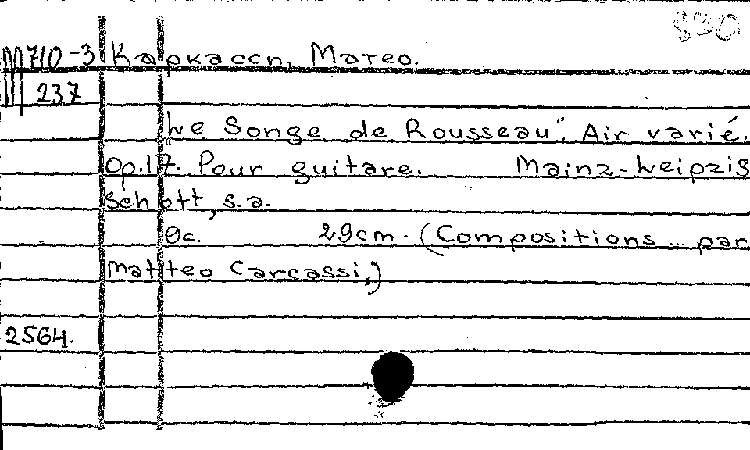 830
М710-3 Каркасси, Матео.
237
"Le Songe de Rousseau". Air varié.
Op.17. Pour guitare. Mainz-Leipzig
Schott, s.a.
9c. 29cm. (Compositions par
Matteo Carcassi,)
2564.